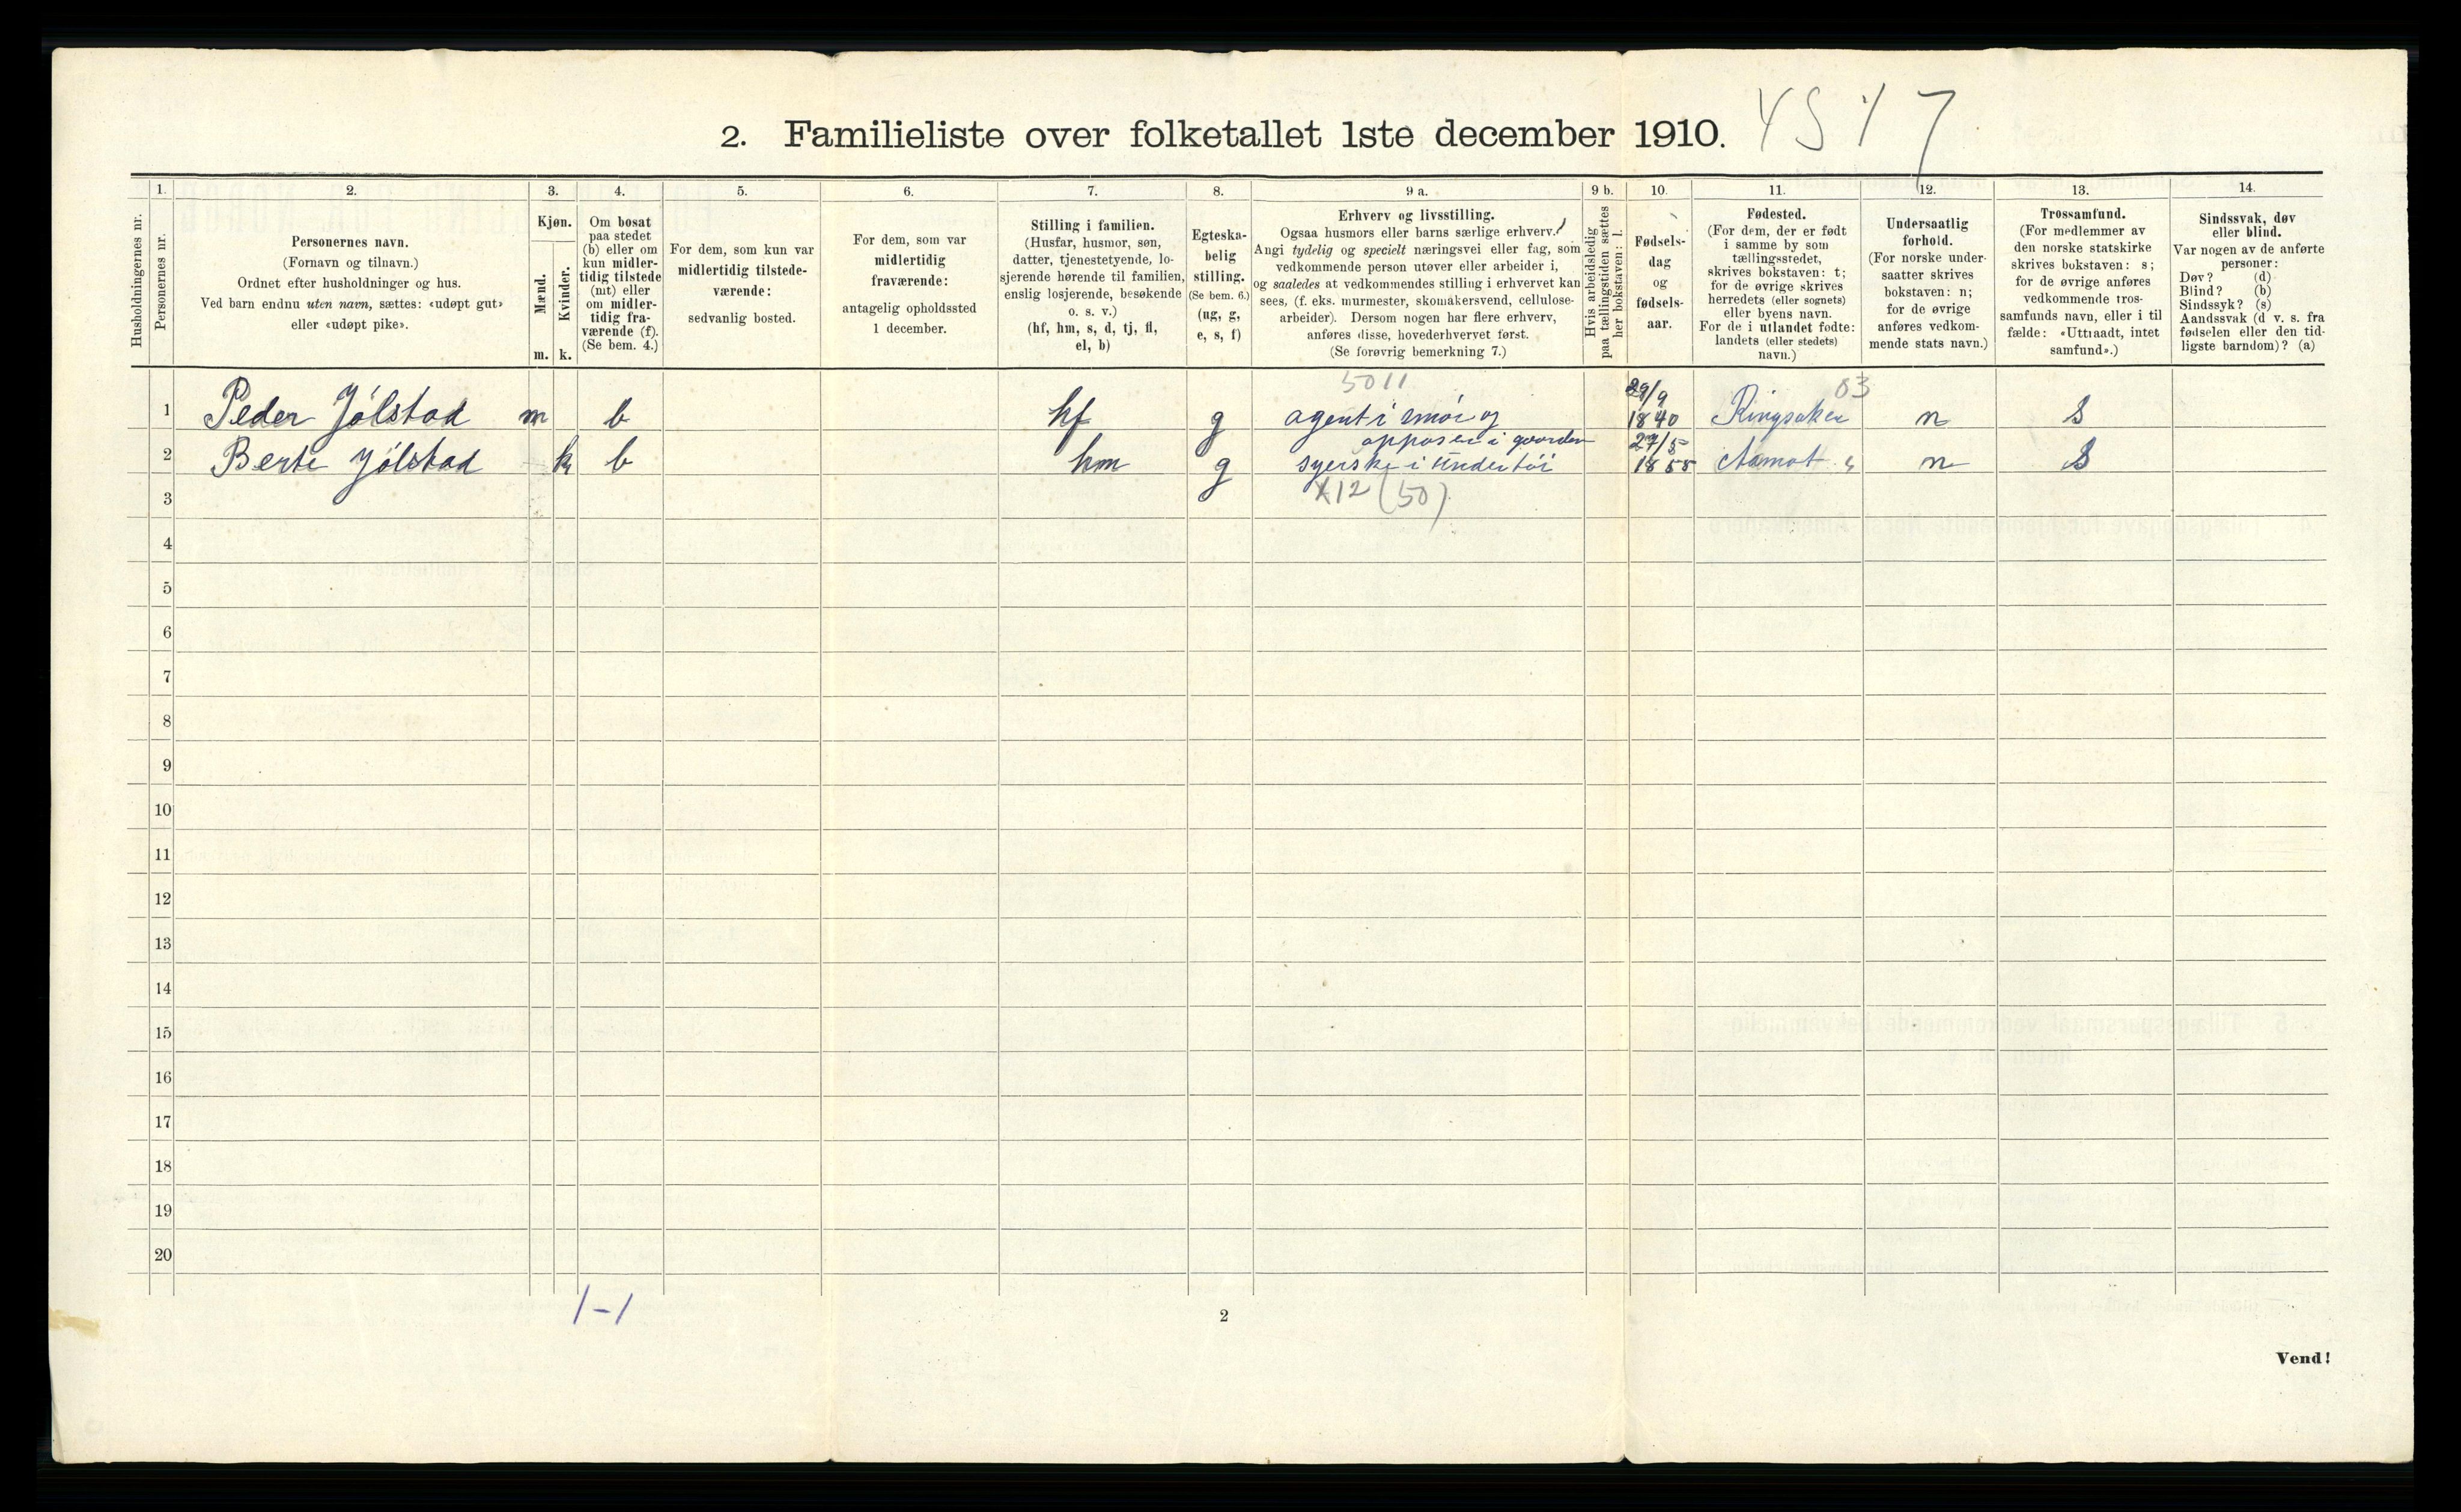 2. Familieliste over folketallet 1ste december 1910.
1. 2. 3. 4. 5. 6. 7. 8. 9 a. 9 b. 10. 11. 12. 13. 14.
Husholdningernes nr.
Personernes nr.
Personernes navn.
(Fornavn og tilnavn.)
Ordnet efter husholdninger og hus.
Ved barn endnu uten navn, sættes: «udøpt gut»
eller «udøpt pike».
Kjøn.
Mænd.
Kvinder.
m. k.
Om bosat
paa stedet
(b) eller om
kun midler-
tidig tilstede
(mt) eller
om midler-
tidig fra-
værende (f).
(Se bem. 4.)
For dem, som kun var
midlertidig tilstede-
værende:
sedvanlig bosted.
For dem, som var
midlertidig
fraværende:
antagelig opholdssted
1 december.
Stilling i familien.
(Husfar, husmor, søn,
datter, tjenestetyende, lo-
sjerende hørende til familien,
enslig losjerende, besøkende
o. s. v.)
(hf, hm, s, d, tj, fl,
el, b)
Egteska-
belig
stilling.
(Se bem. 6.)
(ug, g,
e, s, f)
Erhverv og livsstilling.
Ogsaa husmors eller barns særlige erhverv.
Angi tydelig og specielt næringsvei eller fag, som
vedkommende person utøver eller arbeider i,
og saaledes at vedkommendes stilling i erhvervet kan
sees, (f. eks. murmester, skomakersvend, cellulose-
arbeider). Dersom nogen har flere erhverv,
anføres disse, hovederhvervet først.
(Se forøvrig bemerkning 7.)
Hvis arbeidsledig
paa tællingstiden sættes
her bokstaven: l.
Fødsels-
dag
og
fødsels-
aar.
Fødested.
(For dem, der er født
i samme by som
tællingsstedet,
skrives bokstaven: t;
for de øvrige skrives
herredets (eller sognets)
eller byens navn.
For de i utlandet fødte:
landets (eller stedets)
navn.)
Undersaatlig
forhold.
(For norske under-
saatter skrives
bokstaven: n;
for de øvrige
anføres vedkom-
mende stats navn.)
Trossamfund.
(For medlemmer av
den norske statskirke
skrives bokstaven: s;
for de øvrige anføres
vedkommende tros-
samfunds navn, eller i til
fælde: «Uttraadt, intet
samfund».)
Sindssvak, døv
eller blind.
Var nogen av de anførte
personer:
Døv? (d)
Blind? (b)
Sindssyk? (s)
Aandssvak (d. v. s. fra
fødselen eller den tid-
ligste barndom)? (a)
5011 29/9 03
1 Peder Jölstad m b hf g agent i smör og 1840 Ringsaker n S
opposer i gaarden 27/5
2 Berte Jölstad k b hm g syerske i Undertöi 1855 Aamot n S
3 X12 (50)
4
5
6
7
8
9
10
11
12
13
14
15
16
17
18
19
20
1-1
2
Vend!